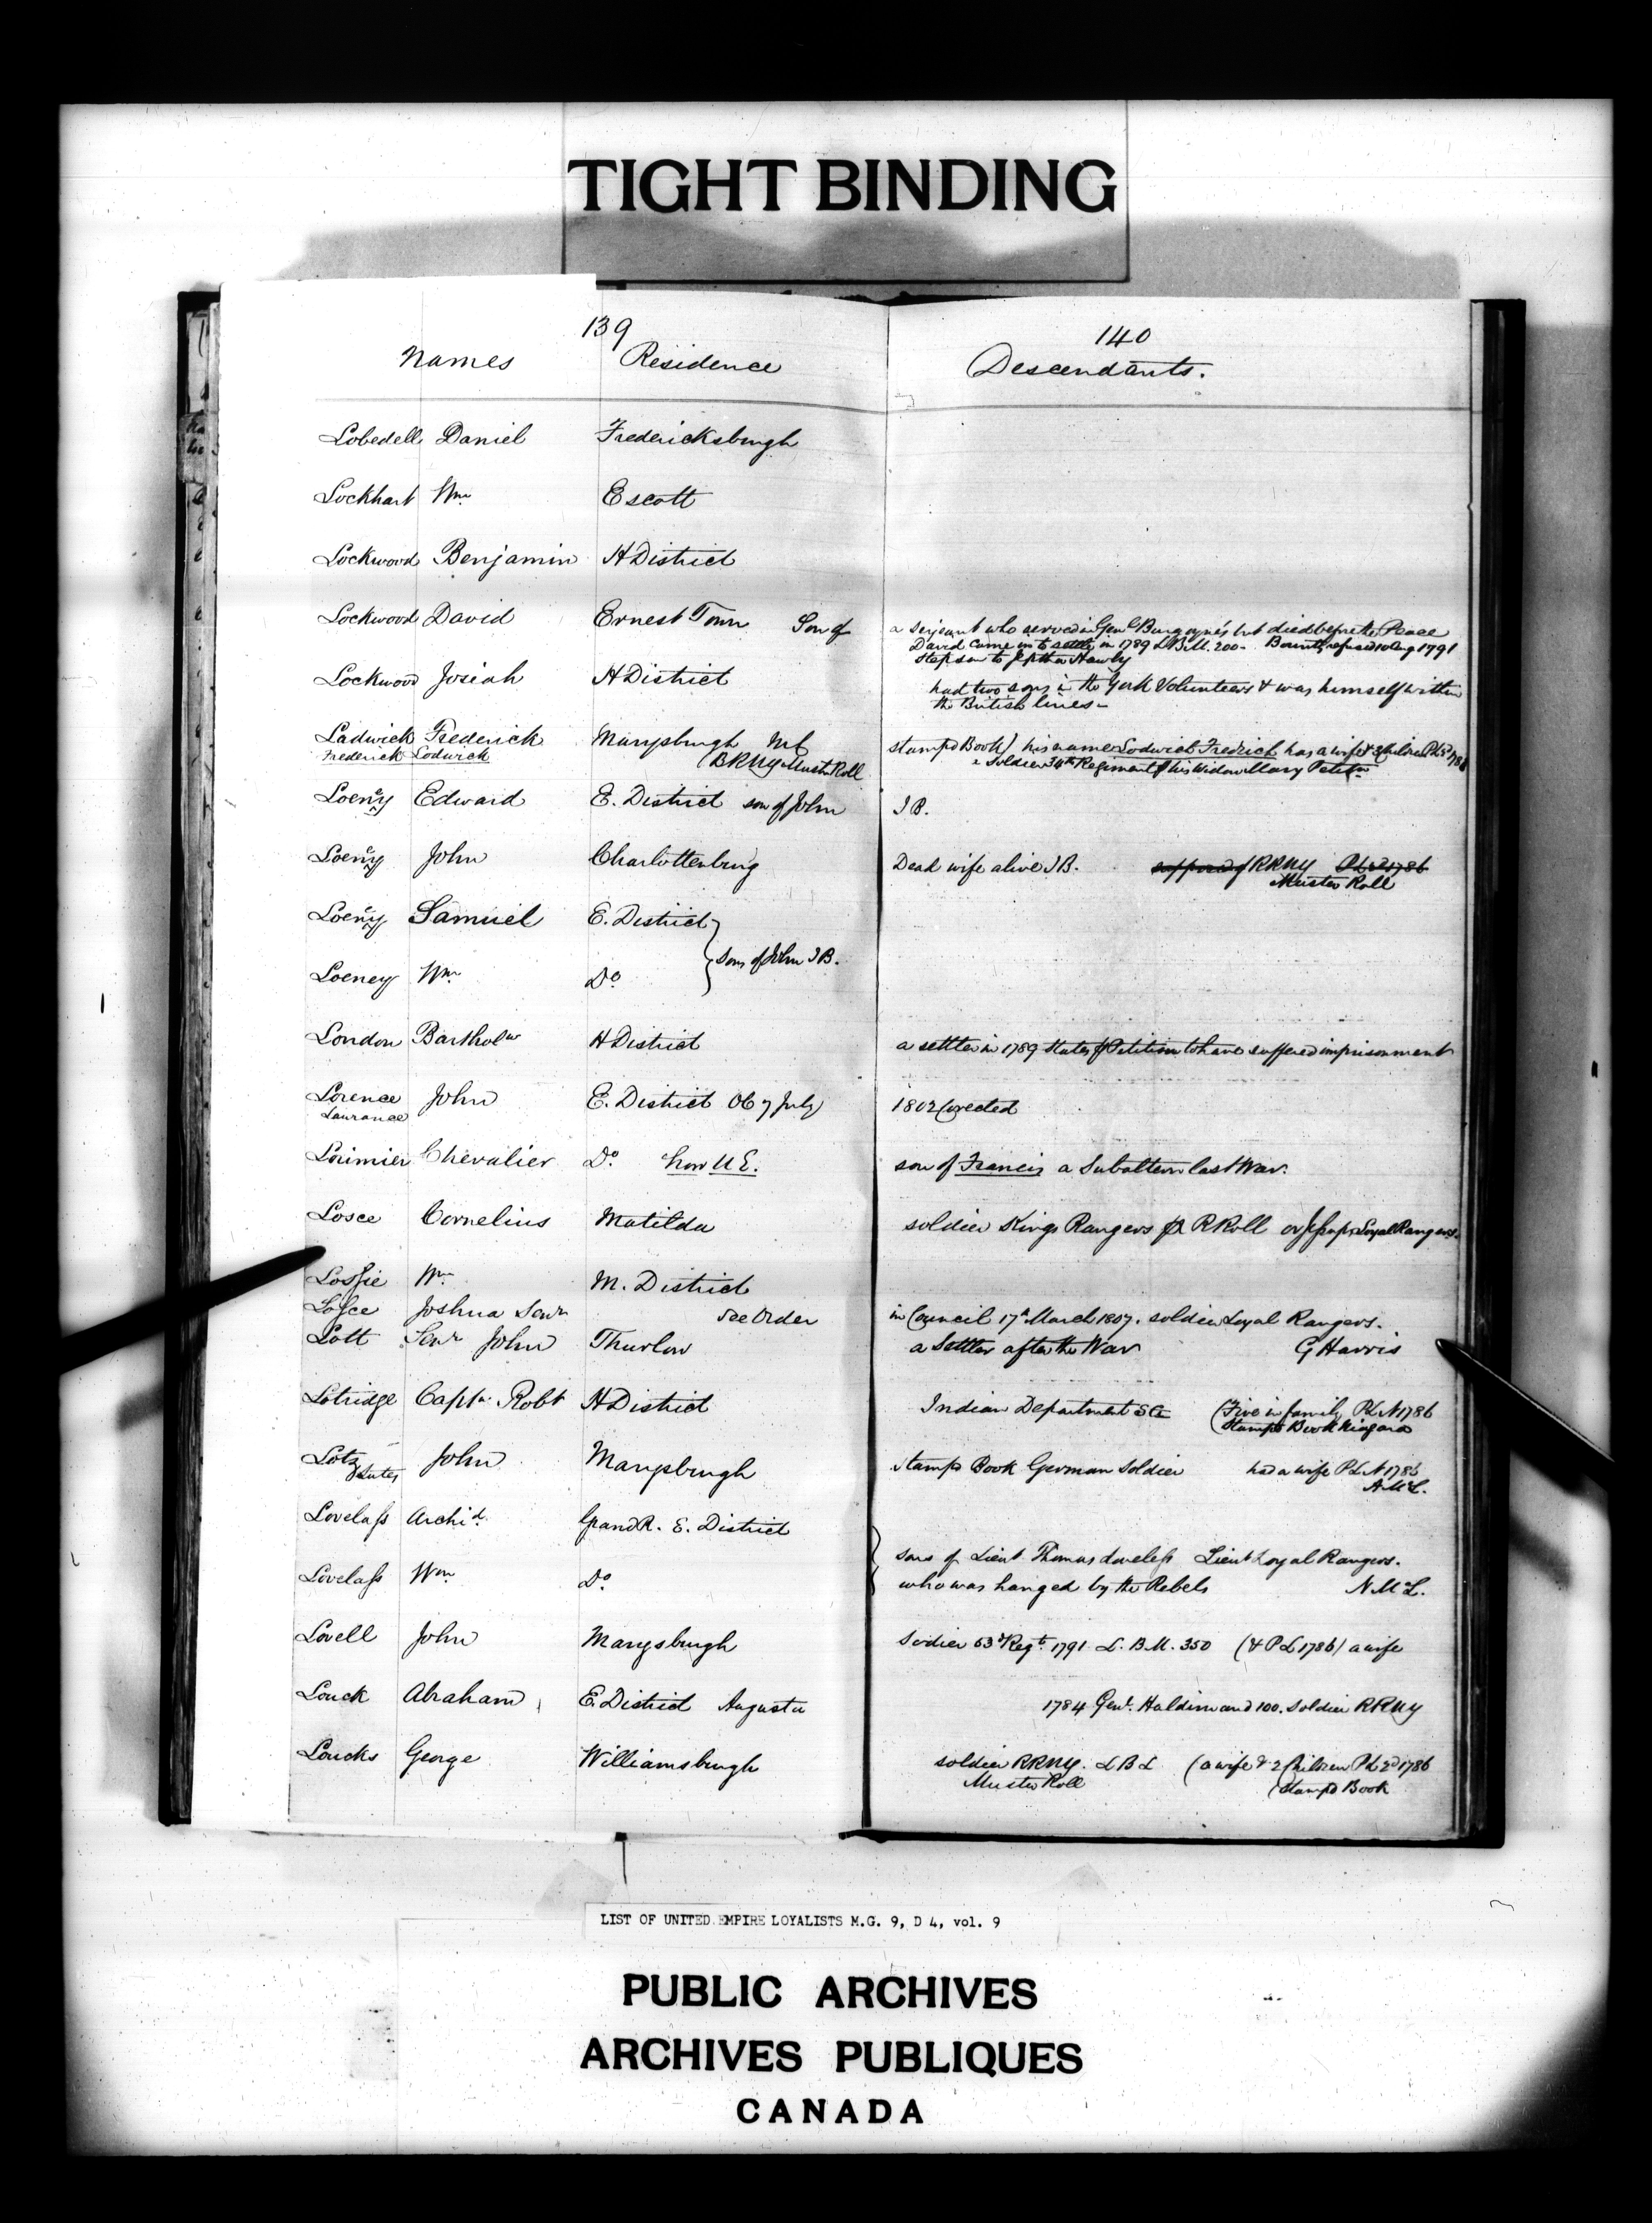 TIGHT BINDING
139
140
Names Residence Descendants.
Lobedell Daniel Fredericksburgh
Lockhart Wm Escott
Lockwood Benjamin H District
Lockwood David Ernest Town Son of a Serjeant who served in Genl Burgoyne's but died before the Peace
David came in to settle in 1789 L B M. 200 - Bounty refused 10 Aug 1791
Stepson to Jeptha Hawly
Lockwood Josiah H District had two sons in the York Volunteers & was himself within
the British lines -
Ladwick Frederick Marysburgh stampd Book) his name Lodwick Fredrick has a wife & 3 Children PL 2d 1786
Frederick Lodwick Muster Roll Soldier 34th Regiment his Widow Mary
Loeny Edward E. District son of John J B.
Loeny John Charlottenburg Dead wife alive J B. supposed of RRNY PL 2d 1786
Muster Roll
Loeny Samuel E. District
sons of John J B.
Loeney Wm Do
London Bartholw H District a settler in 1789 States P Petition to have suffered imprisonment
Lorence John E. District Ob 7 July 1802 Corected
Laurance
Lorimier Chevalier Do now U E. son of Francis a Subaltern last War.
Losce Cornelius Matilda soldier Kings Rangers P R Roll or Jessups Loyal Rangers.
Lossie Wm M. District
Losce Joshua Senr See Order in Council 17th March 1807. soldier Loyal Rangers.
Lott Senr John Thurlow a Settler after the War G Harris
Lotridge Captn Robt H District Indian Department (Five in family PL N 1786
Stampd Book Niagara
Lotz John Marysburgh stampd Book German Soldier had a wife PL N 1786
Lutes A McL.
Lovelass Archid Grand R. E. District
sons of Lieut Thomas Loveless Lieut Loyal Rangers.
Lovelass Wm Do who was hanged by the Rebels N McL.
Lovell John Marysburgh Soldier 53d Regt 1791 L. B M. 350 (& PL 1786) a wife
Louck Abraham E District Augusta 1784 Genl. Haldimand 100. soldier RRNY
Loucks George Williamsburgh soldier RRNY. L B L (a wife & 2 Children PL 2d 1786
Muster Roll (Stampd Book
LIST OF UNITED EMPIRE LOYALISTS M.G. 9, D 4, vol. 9
PUBLIC ARCHIVES
ARCHIVES PUBLIQUES
CANADA